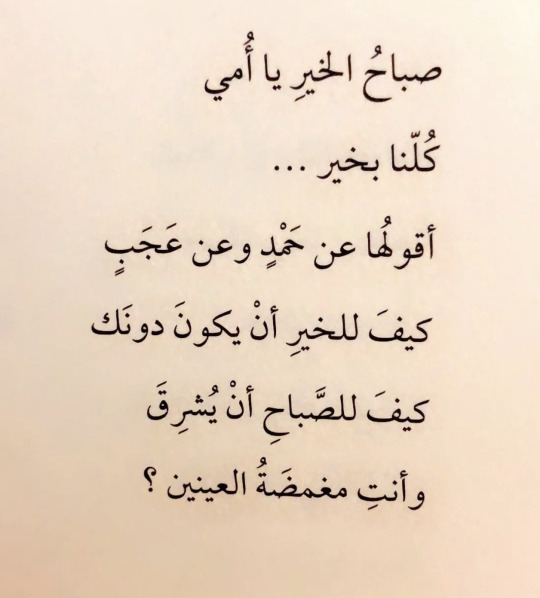 صباحُ الخيرِ يا أُمي
كُلّنا بخير ...
أقولُها عن حَمْدٍ وعن عَجَبٍ
كيفَ للخيرِ أنْ يكونَ دونَك
كيفَ للصَّباحِ أنْ يُشرِقَ
وأنتِ مغمضَةُ العينين ؟